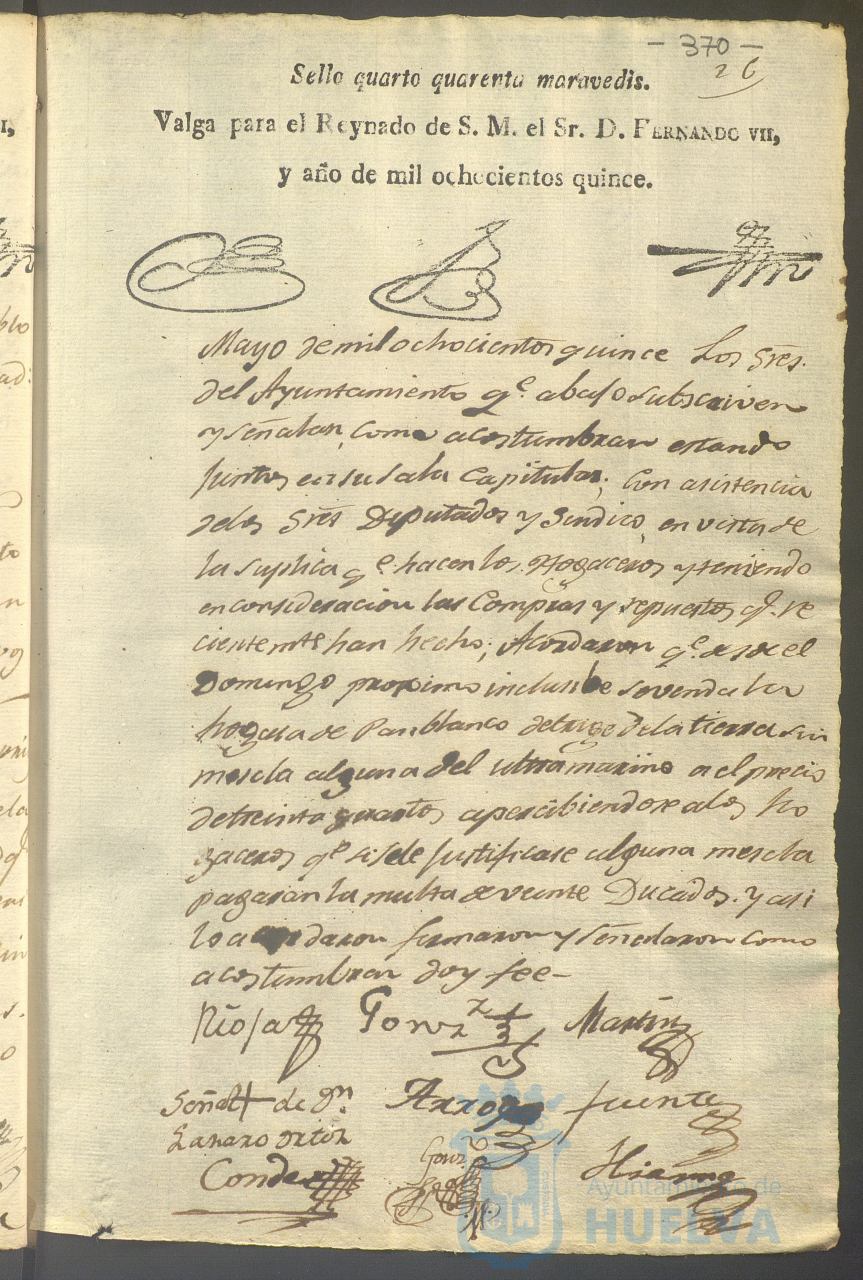 - 370 -
26
Sello quarto quarenta maravedis.
Valga para el Reynado de S. M. el Sr. D. FERNANDO VII,
y año de mil ochocientos quince.
Mayo de mil ochocientos quince Los Sres.
del Ayuntamiento qe. abajo subscriven
y señalan, como acostumbran estando
juntos en su sala Capitular, con asistencia
de los Sres Deputados y Sindico, en vista de
la suplica qe. hacen los Hogaceros y teniendo
en consideracion las Compras y repuestos qe. re
cientemte han hecho; Acordaron qe. desde el
Domingo proximo inclusibe se venda la
hogasa de Pan blanco de trigo de la tierra sin
mescla alguna del ultramarino a el precio
de treinta quartos apercibiendose a los ho
gaceros qe. si se le justificase alguna mescla
pagaran la multa de veinte Ducados. Y asi
lo acordaron firmaron y señalaron como
acostumbran doy fee-
Rioja Gonz Martin
Señal + de Dn. Arroyo fuentes
Lazaro ortiz
Conde Gonz
Ayuntamiento de
HUELVA